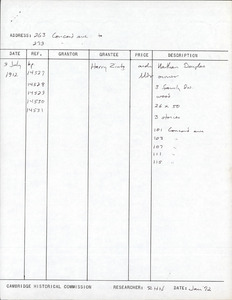 ADDRESS: 263 Concord ave
273 "
DATE REF. GRANTOR GRANTEE PRICE DESCRIPTION
3 July bp Harry Zinty arch Nathan Douglas
1912 14527 owner
14528 3 family Dw.
14529 wood
14530 26 x 50
14531 3 stories
101 Concord ave
103 "
107 "
111 "
115 "
CAMBRIDGE HISTORICAL COMMISSION RESEARCHER: DATE: Jan 72